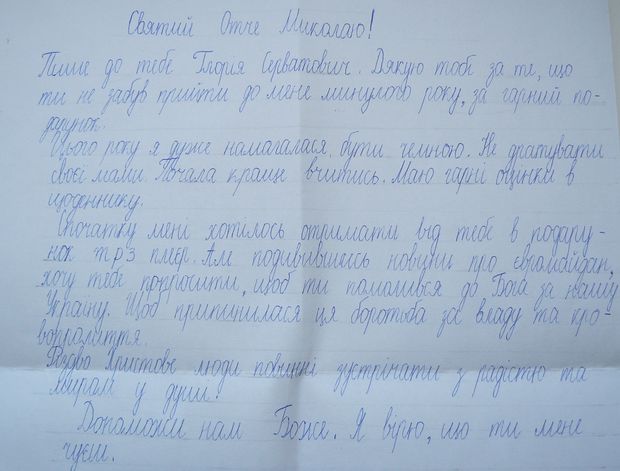 Святий Отче Миколаю!
Пише до тебе Глорія Серватович. Дякую тобі за те, що
ти не забув прийти до мене минулого року, за гарний по-
дарунок.
Цього року я дуже намагалася бути чемною. Не дратувати
своєї мами. Почала краще вчитись. Маю гарні оцінки в
щоденнику.
Спочатку мені хотілось отримати від тебе в подару-
нок mp3 плеєр. Але подивившись новини про євромайдан,
хочу тебе попросити, щоб ти помолився до Бога за нашу
Україну. Щоб припинилася ця боротьба за владу та кро-
вопролиття.
Різдво Христове люди повинні зустрічати з радістю та
миром у душі!
Допоможи нам Боже. Я вірю, що ти мене
чуєш.